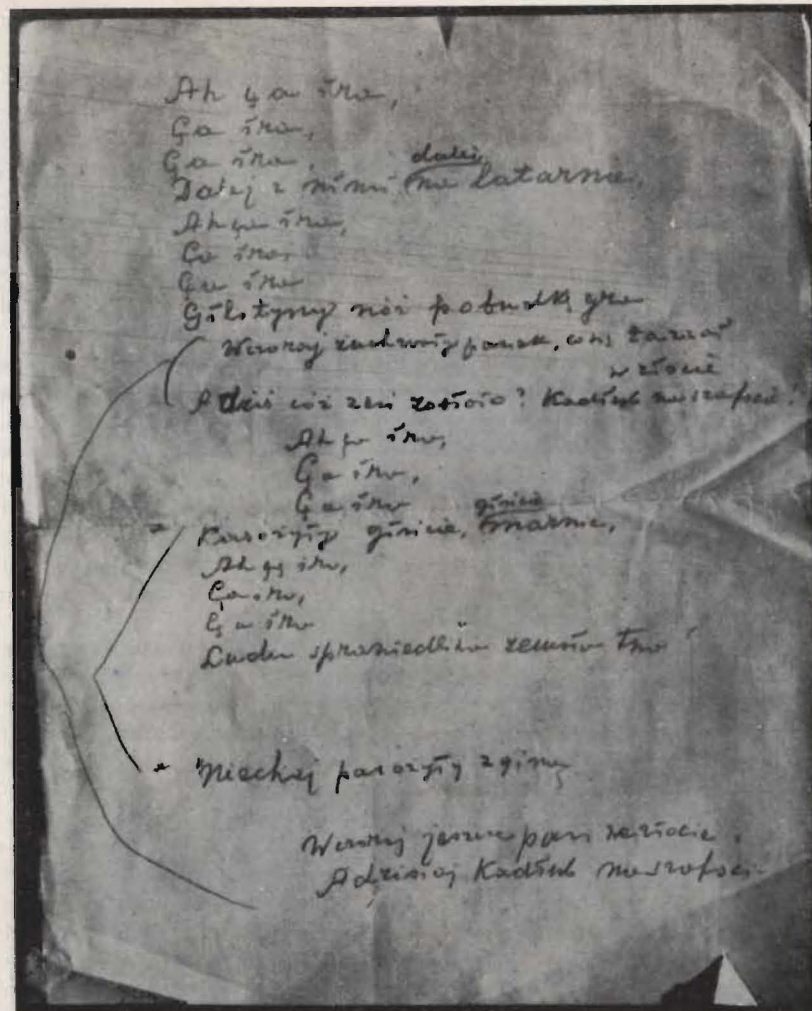 Ah ça ira,
Ça ira,
Ça ira,
dalej
Dalej z nimi na latarnie,
Ah ça ira,
Ça ira,
Ça ira
Gilotyny nóż pobudkę gra
Wczoraj zuchwały panek, co się tarzał
w złocie
A dziś cóż zeń zostało? Kadłub na szafocie!
Ah ça ira,
Ça ira,
Ça ira
gińcie
* Pasożyty gińcie, marnie,
Ah ça ira,
Ça ira,
Ça ira
Ludu sprawiedliwa zemsta trwa!
* Niechaj pasożyty zginą
Wczoraj jeszcze pan w złocie
A dzisiaj Kadłub na szafocie.